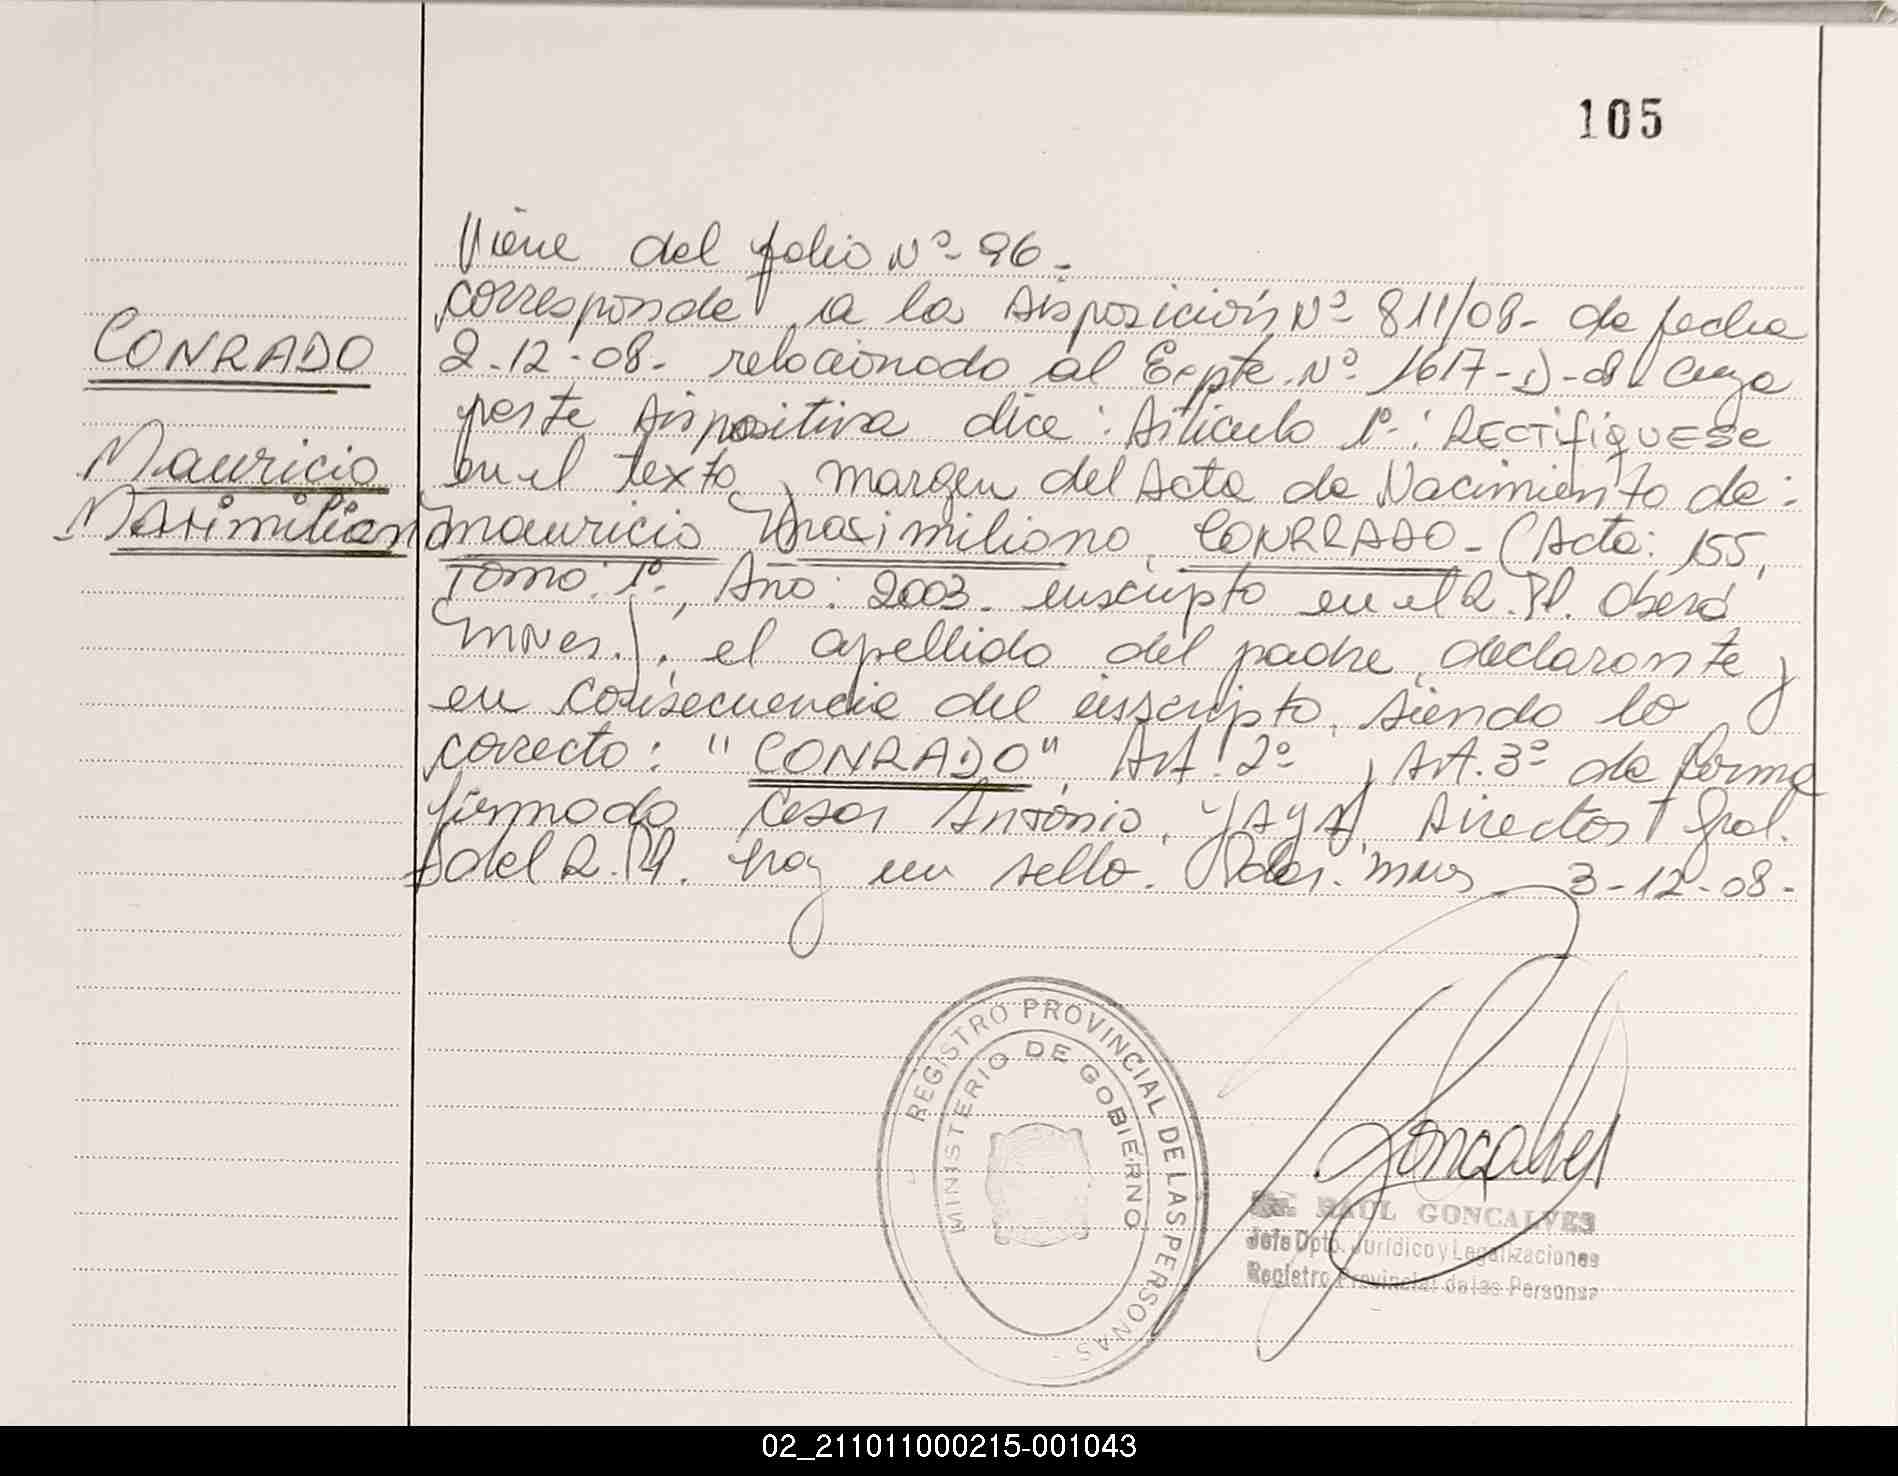 105
Viene del folio Nº 96.
CONRADO
Mauricio
Maximiliano
corresponde a la Disposición Nº 811/08- de fecha
2-12-08- relacionado al Expte. Nº 1617-D-08 cuya
parte dispositiva dice: Artículo 1º: RECTIFIQUESE
en el texto y margen del Acta de Nacimiento de:
Mauricio Maximiliano CONRRADO- (Acta: 155,
Tomo: 1º, Año: 2003. inscripto en el R.P. Oberá
Mnes.). el apellido del padre declarante y
en consecuencia del inscripto, siendo lo
correcto: "CONRADO" Art. 2º y Art. 3º de forma
firmado Cesar Antonio YAYA, Director Gral.
del R.P. hay un sello. Pdas. Mnes 3-12-08-
REGISTRO PROVINCIAL DE LAS PERSONAS
MINISTERIO DE GOBIERNO
Goncalves
RAUL GONCALVES
Jefe Dpto. Jurídico y Legalizaciones
Registro Provincial de las Personas
02_211011000215-001043